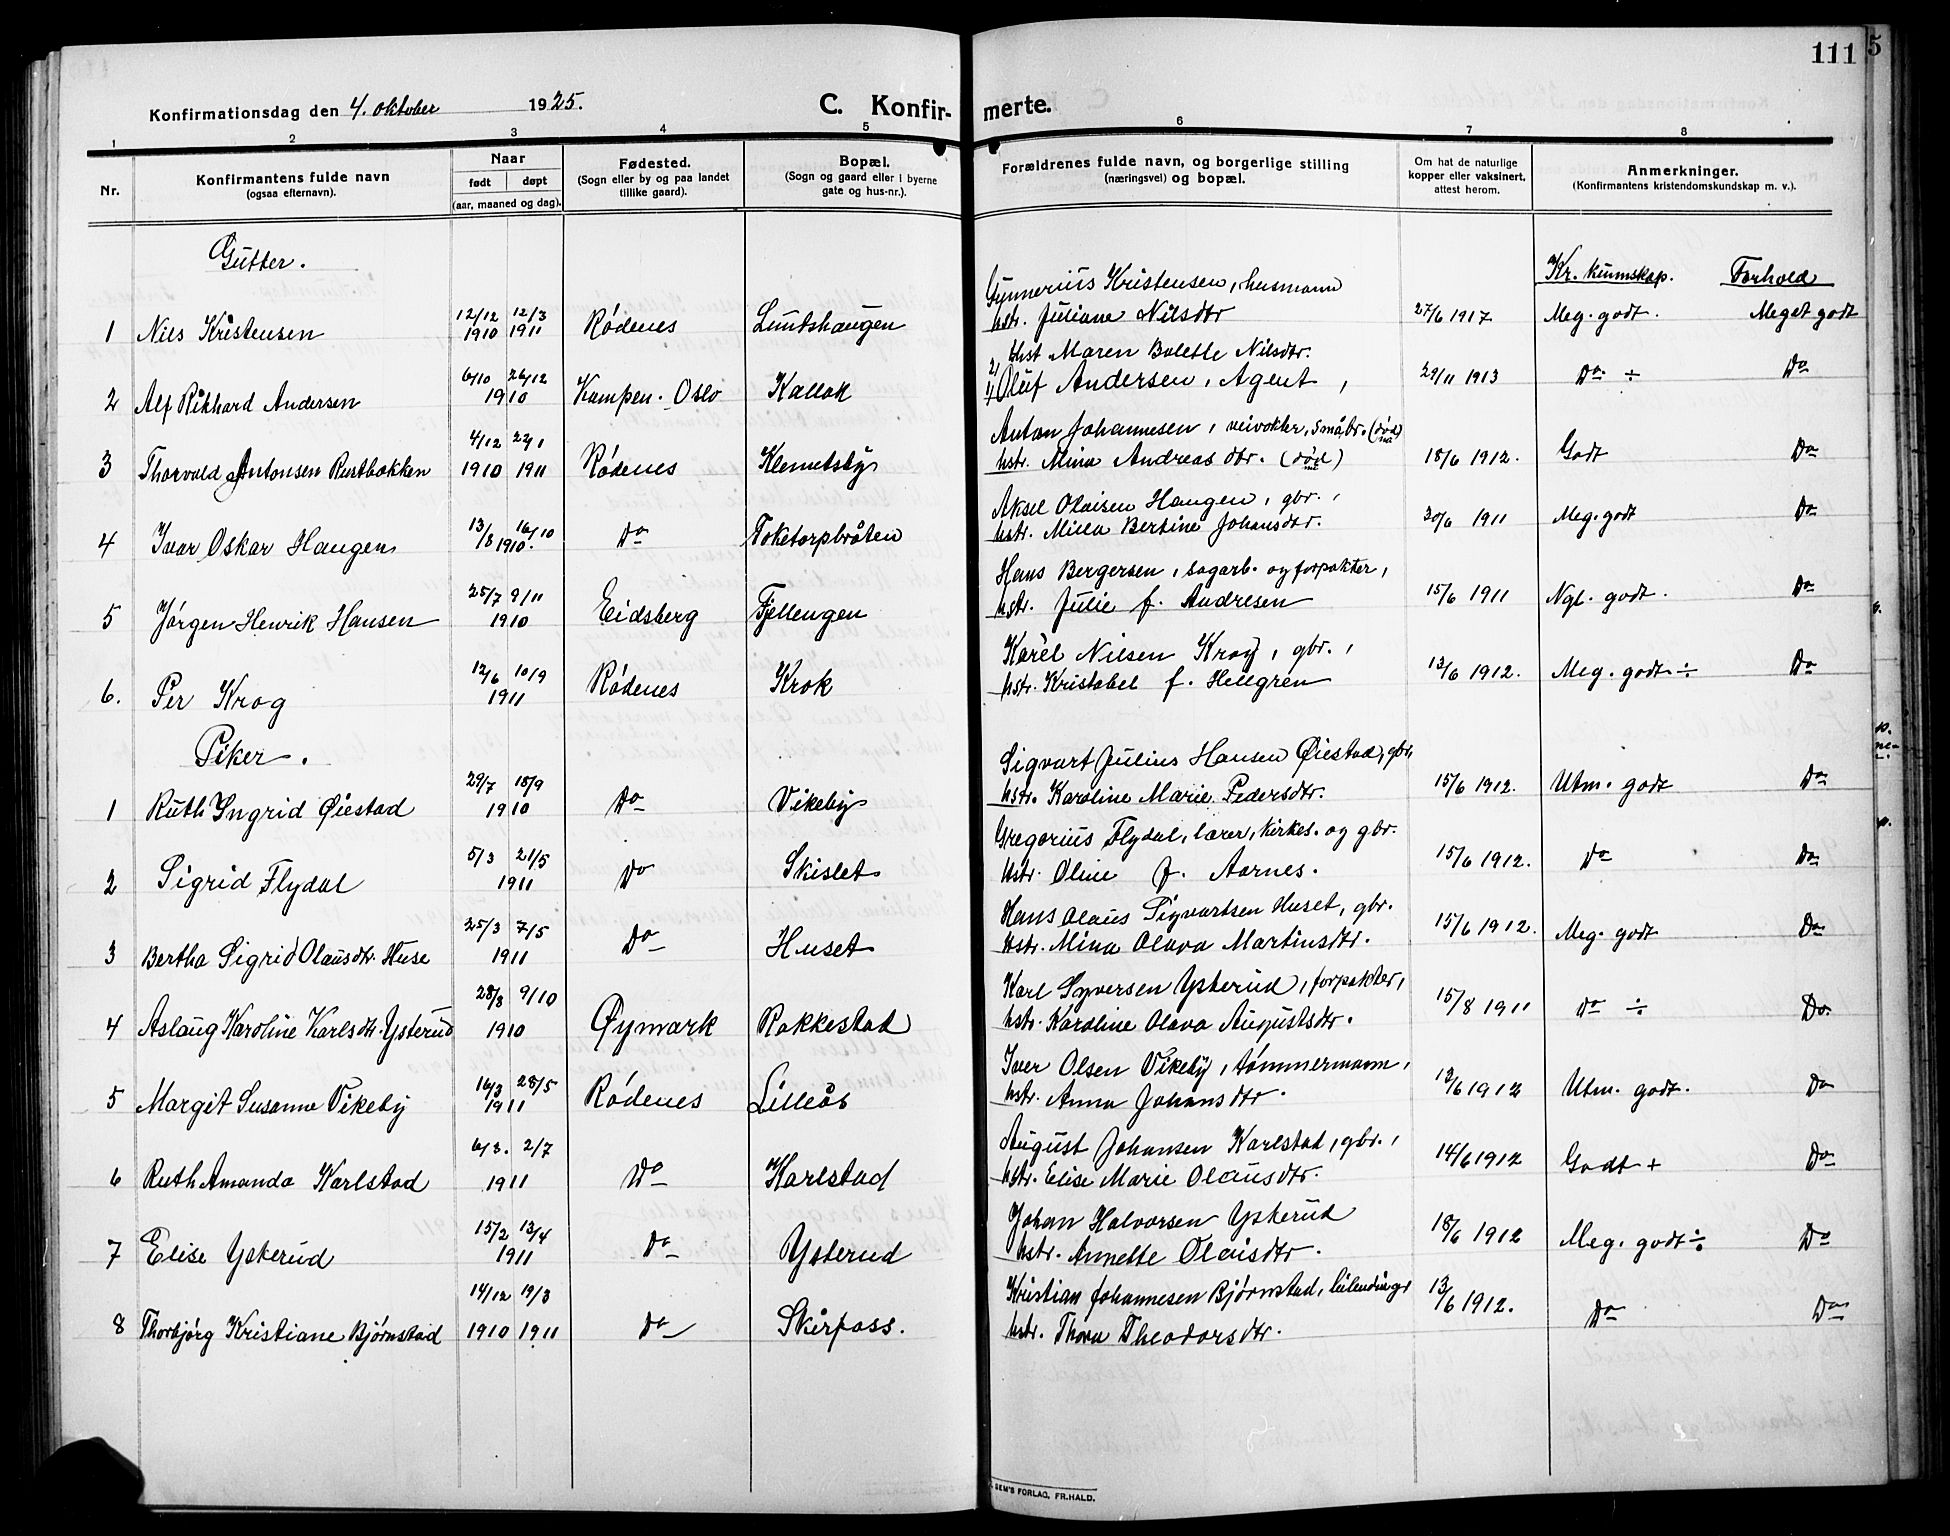 111
5
Konfirmationsdag den 4. oktober 1925.
C. Konfirmerte.
1 2 3 4 5 6 7 8
Nr.
Konfirmantens fulde navn
(ogsaa efternavn).
Naar
født døpt
(aar, maaned og dag).
Fødested.
(Sogn eller by og paa landet
tillike gaard).
Bopæl.
(Sogn og gaard eller i byerne
gate og hus-nr.).
Forældrenes fulde navn, og borgerlige stilling
(næringsvei) og bopæl.
Om hat de naturlige
kopper eller vaksinert,
attest herom.
Anmerkninger.
(Konfirmantens kristendomskundskap m. v.).
Gutter.
Kr. kunnskap. Forhold
Gunnerius Kristensen, husmann
1 Nils Kristensen 12/12 1910 12/3 1911 Rødenes Lundshaugen hstr. Juliane Nilsdtr 27/6 1917 Meg. godt. Meget godt
2) Hst Maren Bolette Nilsdtr.
2 Alf Rikhard Andersen 6/10 26/12 1910 Kampen. Oslo Kallak 1) Oluf Andersen, Agent, 29/11 1913 Do ÷ Do
Anton Johannesen, veivokter, småbr. (død)
3 Thorvald Antonsen Rustbakken 4/12 1910 22/1 1911 Rødenes Klemetsby hstr. Mina Andreasdtr. (død) 18/6 1912. Godt Do
Aksel Olaisen Haugen, gbr.,
4 Ivar Oskar Haugen 13/8 16/10 1910. Do Toketorpbråten hstr. Milla Bertine Johansdtr. 30/6 1911 Meg. godt Do
Hans Bergersen, sagarb. og forpakter,
5 Jørgen Henrik Hansen 25/7 9/11 1910 Eidsberg Fjellengen hstr. Julie f. Andresen 15/6 1911 Ngl. godt. Do
Karel Nilsen Krog, gbr.,
6. Per Krog 12/6 10/9 1911 Rødenes Krok hstr. Kristobel f. Hellgren 13/6 1912. Meg. godt ÷ Do
Piker.
Sigvart Julius Hansen Øiestad, gbr,
1 Ruth Ingrid Øiestad 29/7 18/9 1910 Do Vikeby hstr. Karoline Marie Pedersdtr. 15/6 1912. Utm. godt Do
Gregorius Flydal, lærer, kirkes. og gbr.
2 Sigrid Flydal 5/3 21/5 1911 Do Skislet hstr. Oline f. Aarnes. 15/6 1912. Do Do
Hans Olaus Sigvartsen Huset, gbr.
3 Bertha Sigrid Olausdtr. Huse 25/3 7/5 1911 Do Huset hstr. Mina Olava Martinsdtr. 15/6 1912. Meg. godt Do
Karl Syversen Ysterud, forpakter,
4 Aslaug Karoline Karlsdtr. Ysterud 28/8 9/10 1910 Øymark Rakkestad hstr. Karoline Olava Augustsdtr. 15/8 1911 Do ÷ Do
Iver Olsen Vikeby, tømmermann,
5 Margit Susanne Vikeby 16/3 28/5 1911 Rødenes Lilleås hstr. Anna Johansdtr. 12/6 1912 Utm. godt. Do
August Johansen Karlstad, gbr.,
6 Ruth Amanda Karlstad 6/3. 2/7 1911 Do Karlstad hstr. Elise Marie Olausdtr. 14/6 1912 Godt + Do
Johan Halvorsen Ysterud
7 Elise Ysterud 15/2 13/4 1911 Do Ysterud hstr. Annette Olaisdtr. 18/6 1912 Meg. godt ÷ Do
Kristian Johannesen Bjørnstad, leilendinger
8 Thorbjørg Kristiane Bjørnstad 14/12 1910 19/3 1911 Do Skirpass. hstr. Thora Theodorsdtr. 13/6 1912. Do Do
SEM'S FORLAG, FR.HALD.